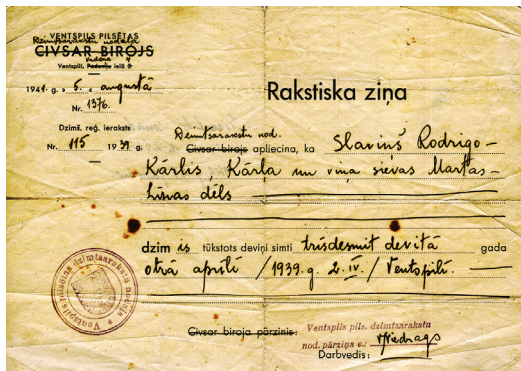 VENTSPILS PILSĒTAS
Dzimtsarakstu nodaļa
CIVSAR BIROJS
Ventspilī, ielā
1941. g. 5. augustā
Nr. 1376.
Dzimš. reģ. ieraksts
Nr. 115 1939. g.
Rakstiska ziņa
Dzimtsarakstu nod.
Civsar birojs apliecina, ka Slaviņš Rodrigo-
Kārlis, Kārļa un viņa sievas Martas-
dēls
dzimis tūkstots deviņi simti trīsdesmit devītā gada
otrā aprīlī /1939. g. 2. IV./ Ventspilī.
Ventspils pilsētas dzimtsarakstu nodaļa
Civsar biroja pārzinis:
Ventspils pils. dzimtsarakstu
nod. pārziņa v.:
Darbvedis: